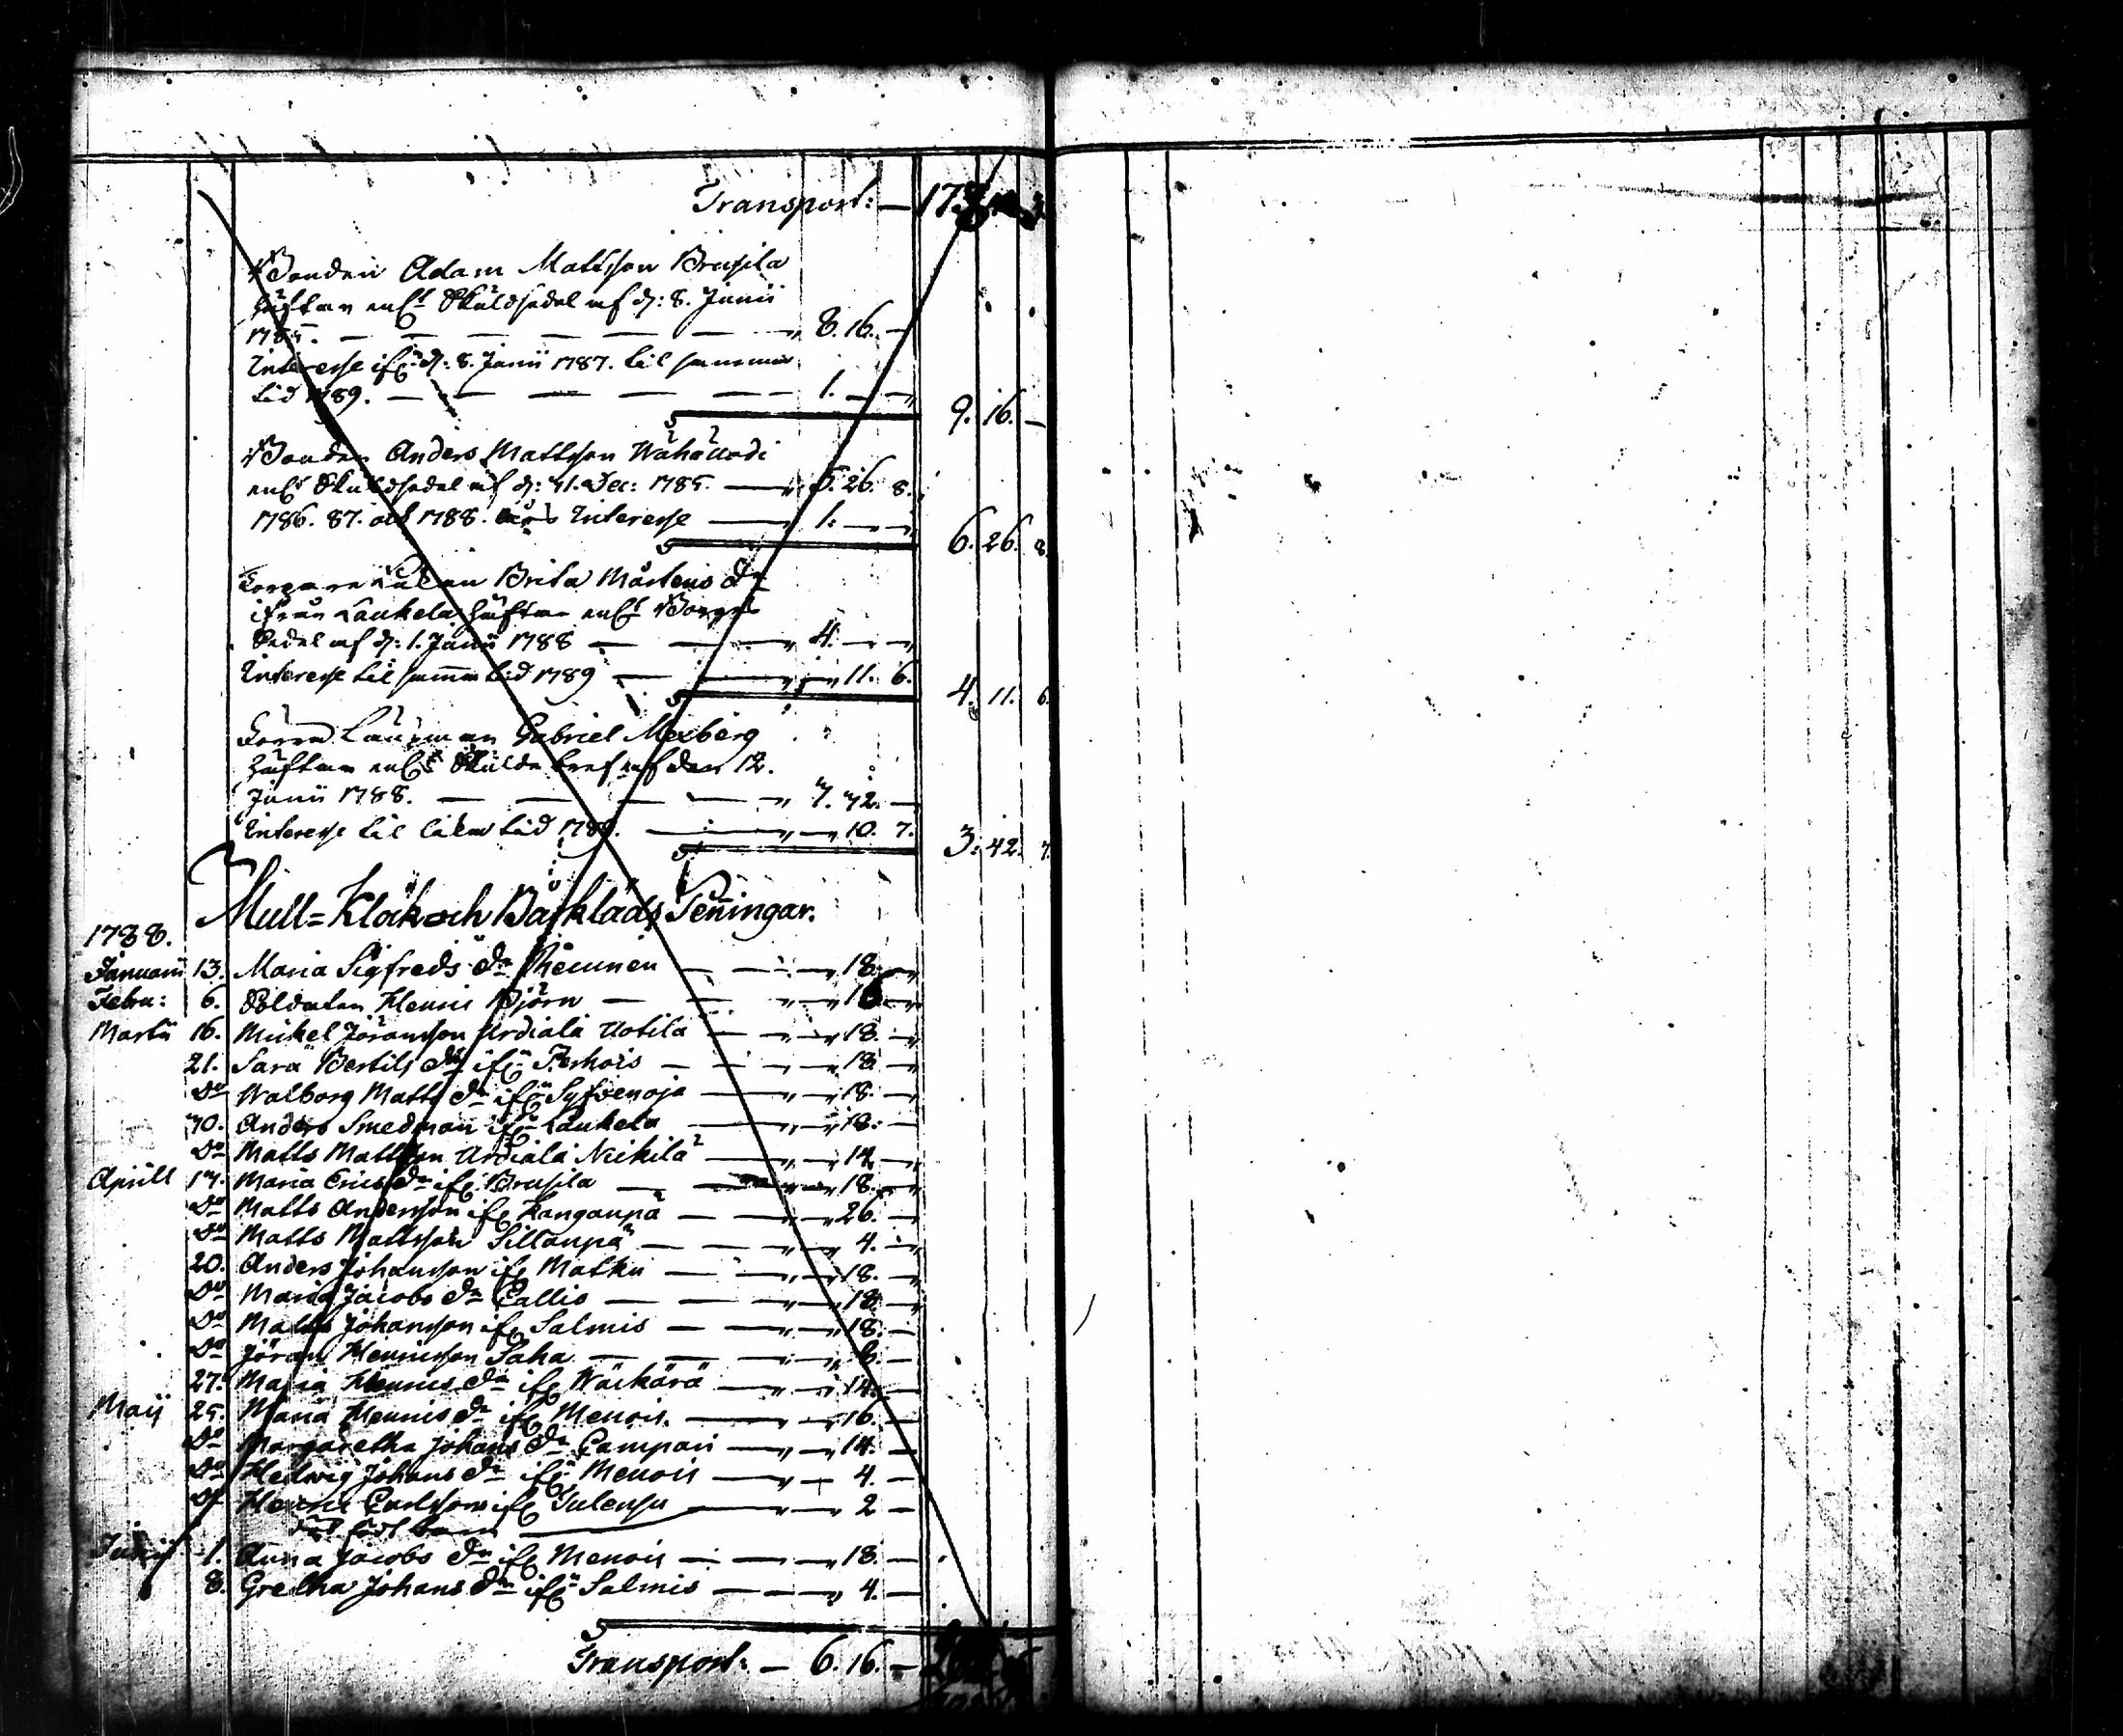 Transport: — 17
Bonden Adam Mattsson Brusila
häftar enl:t Skuldsedel af d: 8. Junii
1785. — — — — — — „ 8. 16. —
Interesse ifr: d: 8. Junii 1787. til samma
tid 1789. — — — — — 1. — „
9. 16. —
Bonden Anders Mattsson
enl:t Skuldsedel af d: 31. Dec: 1785. — „ 5. 26. 8.
1786. 87. och 1788. års Interesse — „ 1. — „
6. 26. 8.
Brita Mårtens Dr
ifrån Laukela häftar enl:t Borgs
Sedel af d: 1. Junii 1788 — — „ 4. — „
Interesse til samma tid 1789 — — „ — „ 11. 6.
4. 11. 6.
Förra Länsman Gabriel Mexberg
häftar enl:t Skulde bref af den 12.
Junii 1788. — — — — „ 3. 32. —
Interesse til lika tid 1789. — „ — „ 10. 7.
3. 42. 7.
Mull= Klock och Bårklads Peñingar.
1788.
Januarii 13. Maria Sigfreds Dr — — „ 18. „
Febru: 6. Soldaten Henric Björn — — „ — „ 18. „
Martii 16. Mickel Jöransson Urdiala Uotila — „ — „ 18. „
21. Sara Bertils Dr ifr: Perhois — — „ 18 —
Do Walborg Matts Dr ifr: Syfvenoja — „ — „ 18. —
30. Anders Smedman ifr: Laukela — „ — „ 18: —
Do Matts Mattsson Urdiala Neikilä — „ — „ 14 —
Aprill 13. Maria Erics Dr ifr: Brusila — — „ 18. „
Do Matts Andersson ifr: Kanganpä — — „ 26. —
Do Matts Mattsson Sillanpä — — „ — 4. —
20. Anders Johansson ifr: Matku — — „ — „ 18. —
Do Maria Jacobs Dr Callio — — „ — „ 18 —
Do Matts Johansson ifr: Salmis — — „ — „ 18. —
Do Jöran Henricsson Saha — — „ — „ 8. —
27. Maria Henrics Dr ifr: Wäckärä — „ — „ 14. —
Maij 25. Maria Henrics Dr ifr: Menois. — „ — „ 16. —
Do Margaretha Johans Dr Campari — „ — „ 14. —
Do Hedwig Johans Dr ifr: Menois — „ — 4. —
Do Henric Carlsson ifr: — „ — 2 —
född barn
Junij 1. Anna Jacobs Dr ifr: Menois — — „ 18. —
8. Gretha Johans Dr ifr: Salmis — — „ 4. —
Transport: — 6. 16. —